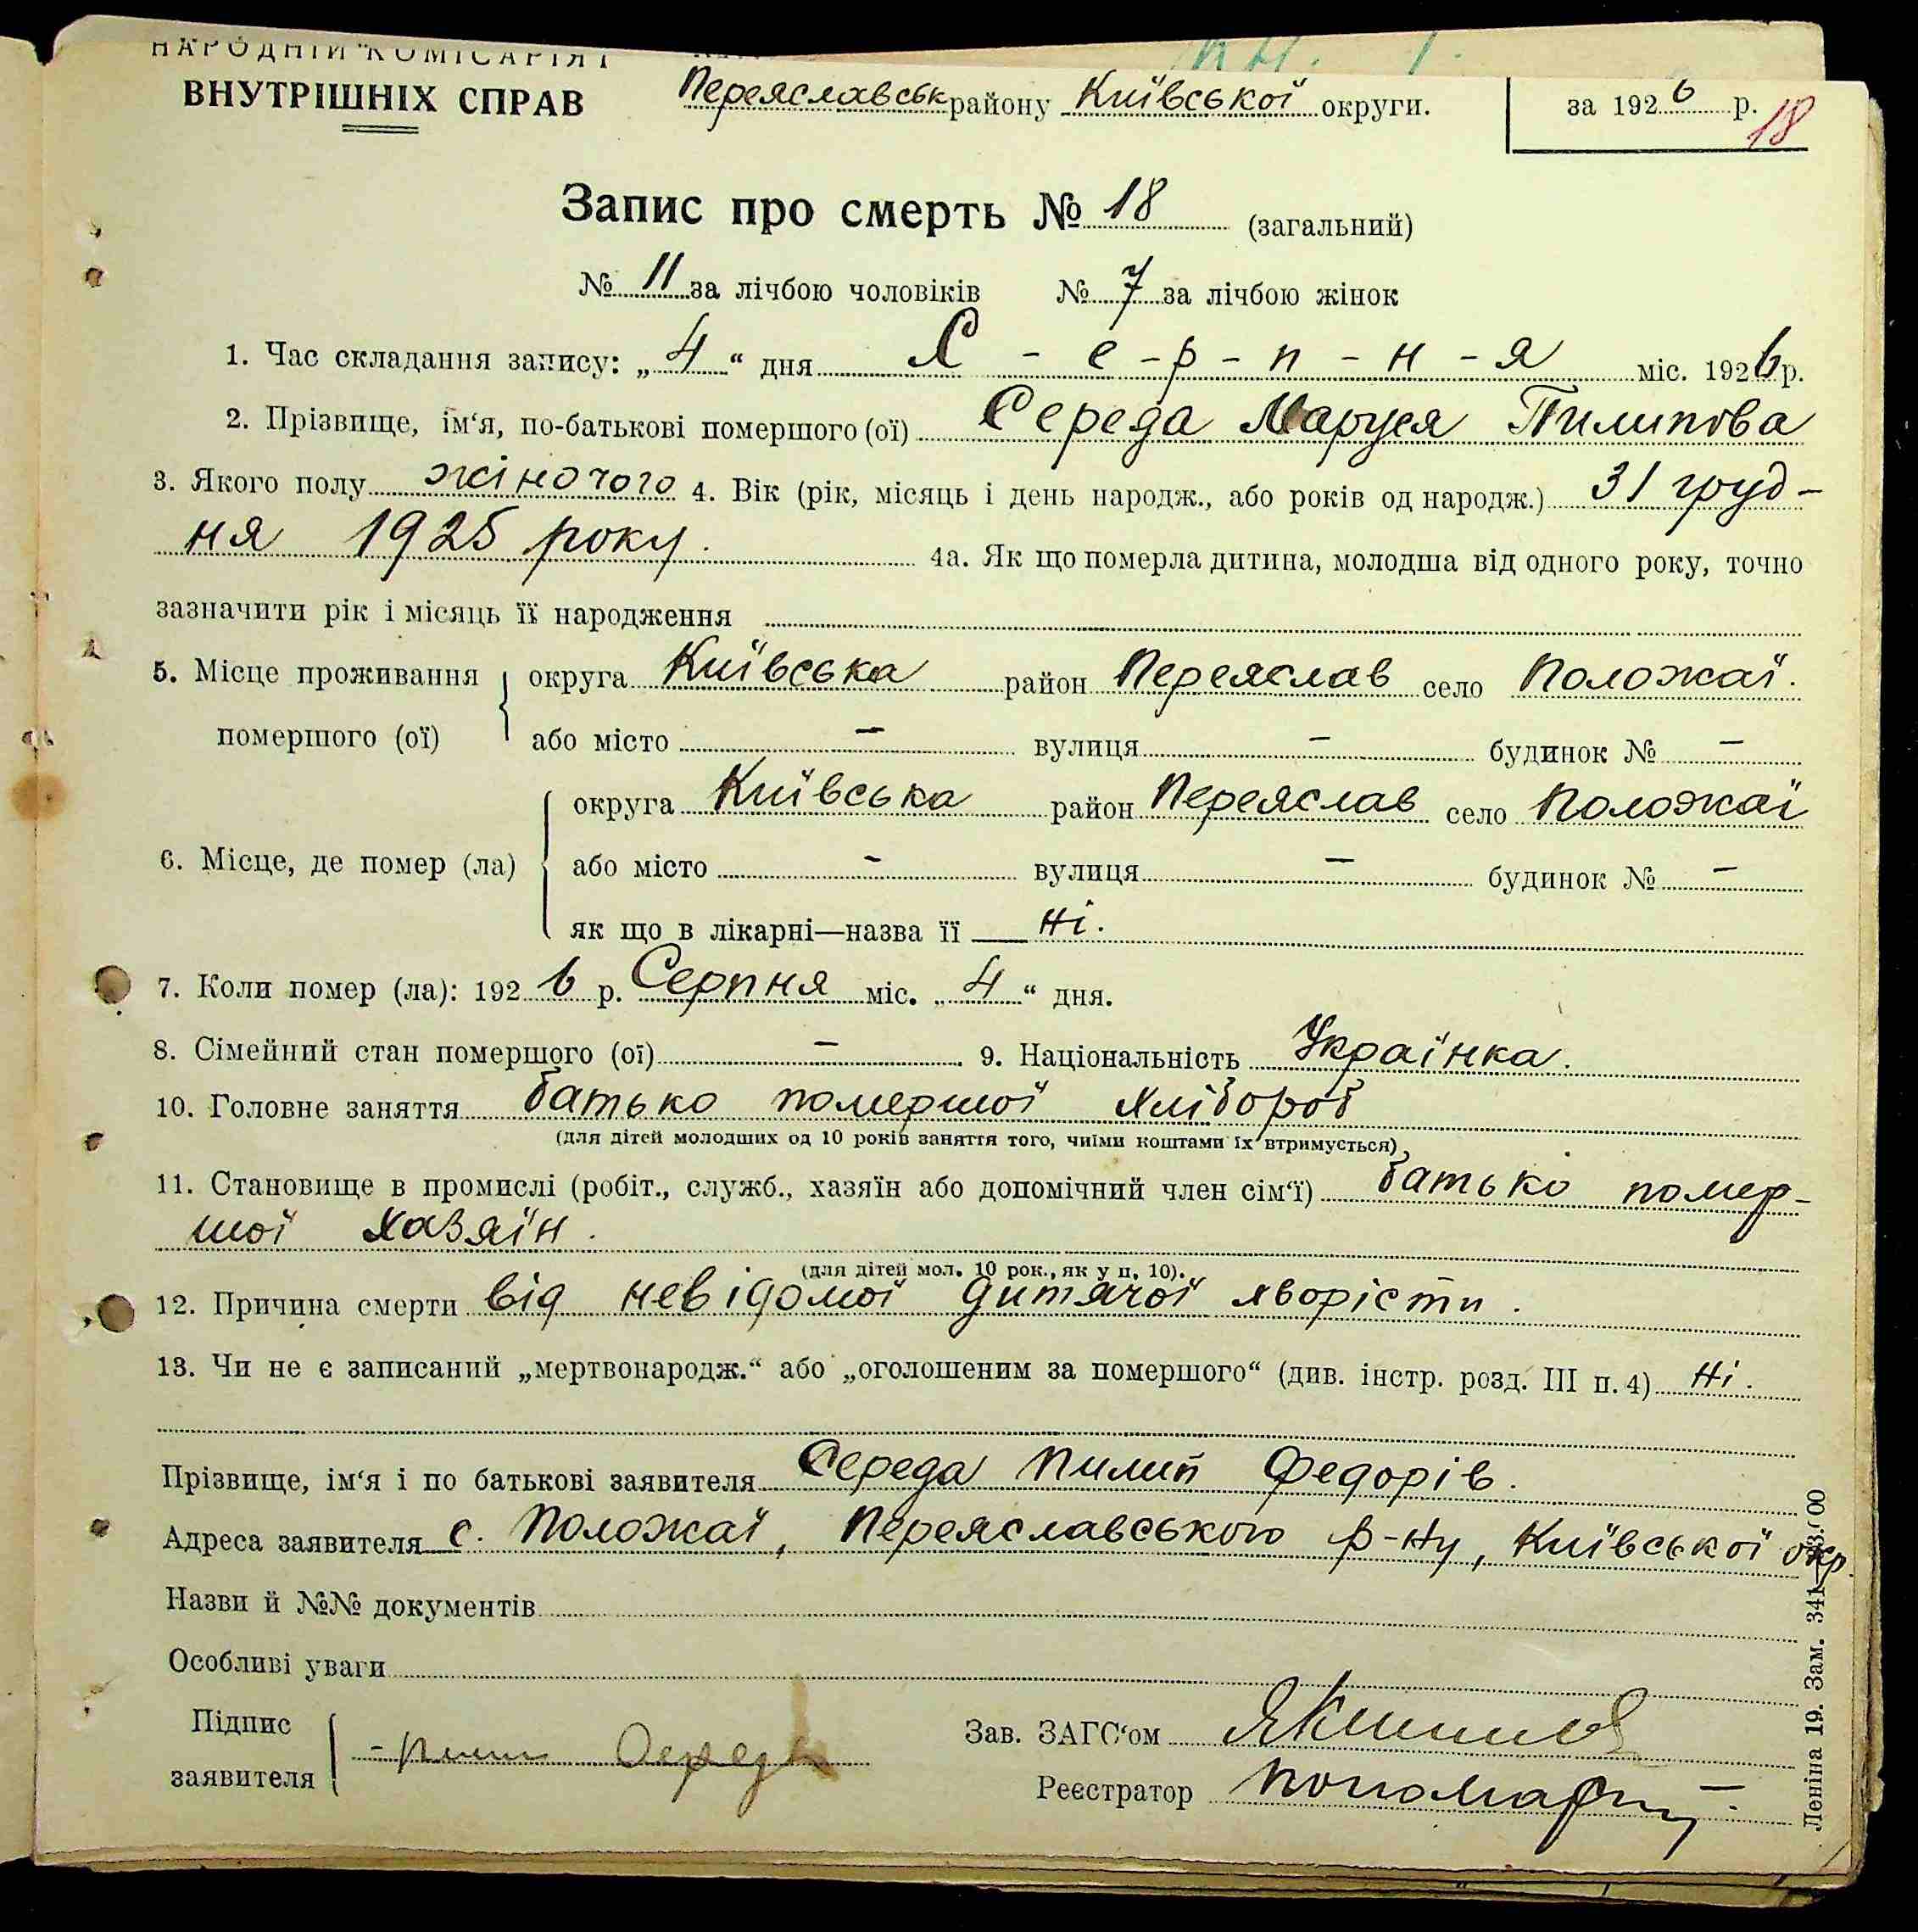 НАРОДНІЙ КОМІСАРІЯТ
ВНУТРІШНІХ СПРАВ
Переяславськ району Київської округи.
за 1926 р.
18
Запис про смерть № 18 (загальний)
№ 11 за лічбою чоловіків № 7 за лічбою жінок
1. Час складання запису: „4“ дня С - е - р - п - н - я міс. 1926 р.
2. Прізвище, ім‘я, по-батькові помершого (ої) Середа Маруся Пилипова
3. Якого полу жіночого 4. Вік (рік, місяць і день народж., або років од народж.) 31 груд-
ня 1925 року. 4а. Як що померла дитина, молодша від одного року, точно
зазначити рік і місяць її народження
5. Місце проживання округа Київська район Переяслав село Положаї.
помершого (ої) або місто – вулиця – будинок № –
округа Київська район Переяслав село Положаї
6. Місце, де помер (ла) або місто - вулиця – будинок № –
як що в лікарні—назва її Ні.
7. Коли помер (ла): 1926 р. Серпня міс. „4“ дня.
8. Сімейний стан помершого (ої) – 9. Національність Українка.
10. Головне заняття батько помершої хлібороб
(для дітей молодших од 10 років заняття того, чиїми коштами їх втримується)
11. Становище в промислі (робіт., служб., хазяїн або допомічний член сім‘ї) батько помер-
шої хазяїн.
(для дітей мол. 10 рок., як у п. 10).
12. Причина смерти від невідомої дитячої хворісти.
13. Чи не є записаний „мертвонародж.“ або „оголошеним за помершого“ (див. інстр. розд. III п. 4) Ні.
Прізвище, ім‘я і по батькові заявителя Середа Пилип Федорів.
Адреса заявителя с. Положаї, Переяславського р-ну, Київської окр.
Назви й №№ документів
Особливі уваги
Підпис
заявителя Середа
Зав. ЗАГС‘ом
Реєстратор
Леніна 19. Зам. 341